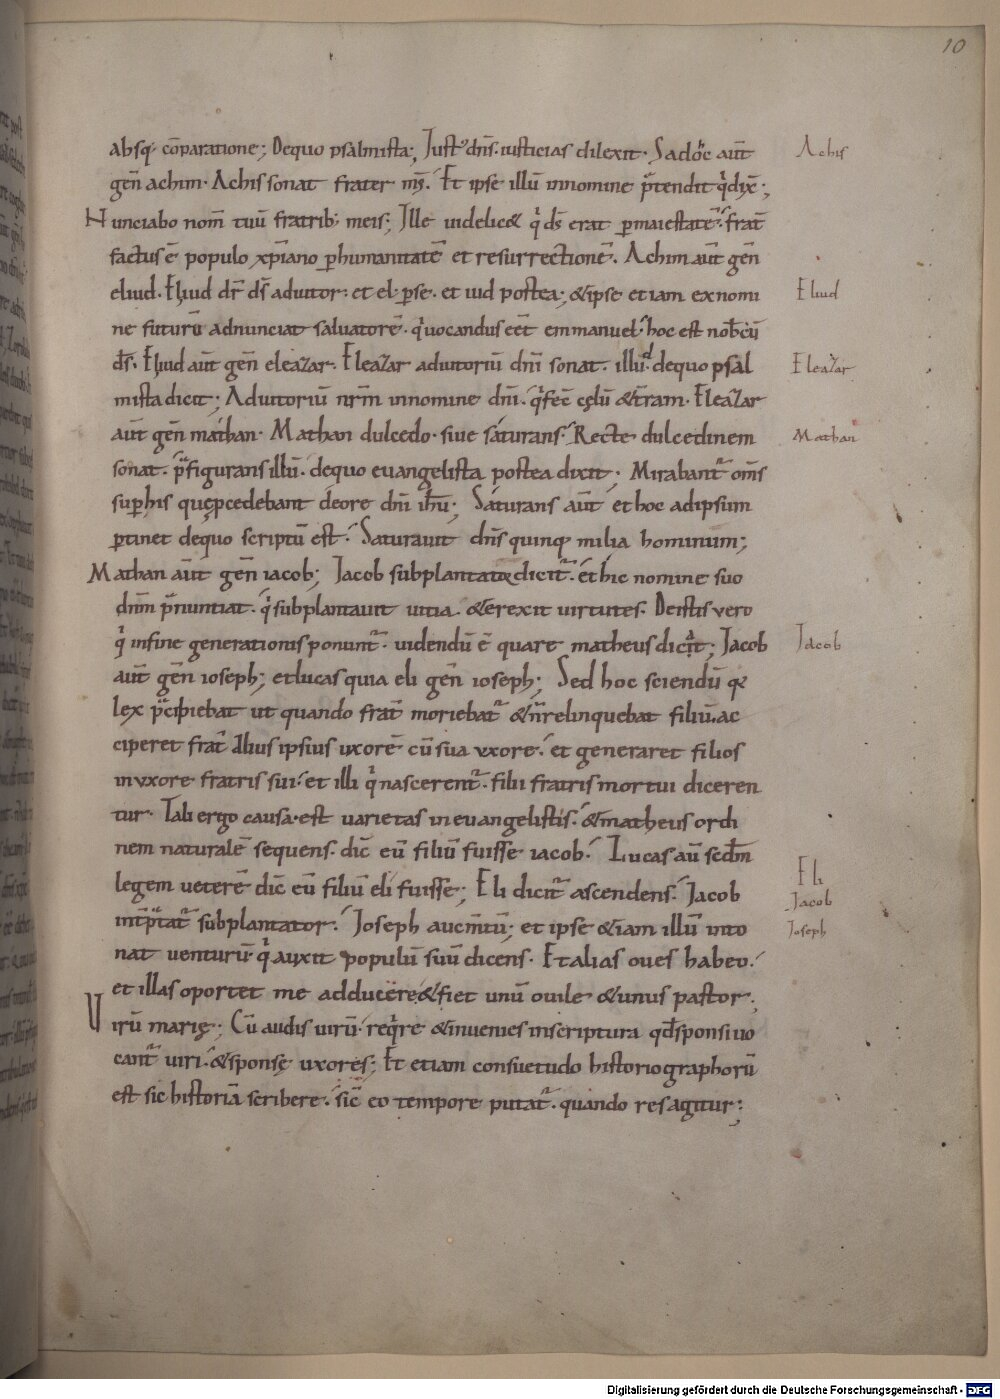 10
absq; cōparatione; Dequo psalmista; Just᷒ dn̄s. iusticias dilexit. Sadoc aūt
Achis
gen̄ achim. Achis sonat frater ms̄. Et ipse illū innomine p̄tendit q̇dix̄;
Nunciabo nom̄ tuū fratrib; meis; Ille uidelic& q̇ ds̄ erat ꝑmaiestatē. frat̄
factus ē populo xp̄iano ꝑhumanitatē et resurrectionē. Achim aūt gen̄
eliud. Eliud dr̄ ds̄ adiutor. et el ꝑse. et iud postea; &ipse etiam exnomi
Eliud
ne futurū adnunciat saluatorē. q̇uocandus eēt emmanuel. hoc est nob̄cū
ds̄. Eliud aūt gen̄ eleazar. Eleazar adiutoriū dn̄i sonat. illud. dequo psal
Eleazar
mista dicit; Adiutoriū nr̄m innomine dn̄i. q̇fec̄ cęlū &tr̄am. Eleazar
aūt gen̄ mathan. Mathan dulcedo. siue saturans. Recte dulcedinem
Mathan
sonat. p̄figurans illū. dequo euangelista postea dixit; Mirabant᷑ om̄s
suꝑhis quęp̄cedebant deore dn̄i ih̄u; Saturans aūt et hoc adipsum
ꝑtinet dequo scriptū est. Saturauit dn̄s quinq; milia hominum;
Mathan aūt gen̄ iacob; Jacob subplantator dicit᷑. et hic nomine suo
dn̄m p̄nuntiat. q̇ subplantauit uitia. &erexit uirtutes. Deistis vero
q̇ infine generationis ponunt᷑. uidendū ē quare matheus dicit; Jacob
Jacob
aūt gen̄ ioseph; etlucas quia eli gen̄ ioseph; Sed hoc sciendū qꝫ
lex p̄cipiebat ut quando frat̄ moriebat᷑ &n̄relinquebat filiū. ac
ciperet frat̄ alius ipsius uxorē cū sua vxore. et generaret filios
invxore fratris sui. et illi q̇ nascerent᷑. filii fratris mortui diceren
tur. Tali ergo causa. est uarietas in euangelistis. &matheus ordi
nem naturalē sequens. dic̄ eū filiū fuisse iacob. Lucas aū secd̄m
legem ueterē dic̄ eū filiū eli fuisse; Eli dicit᷑ ascendens. Jacob
Eli
Jacob
int̄p̄tat᷑ subplantator. Joseph aucm̄tū; et ipse &iam illū into
Joseph
nat venturū. q̇ auxit populū suū dicens. Et alias oues habeo.
et illas oportet me adducere. &fiet unū ouile &unus pastor;
Uirū marię; Cū audis uirū. req̇re &inuenies inscriptura qd̄ sponsi uo
cant᷑ uiri. &sponsę uxores; Et etiam consuetudo historiographorū
est sic historiā scribere. sic̄ eo tempore putat᷑. quando res agitur;
Digitalisierung gefördert durch die Deutsche Forschungsgemeinschaft - DFG